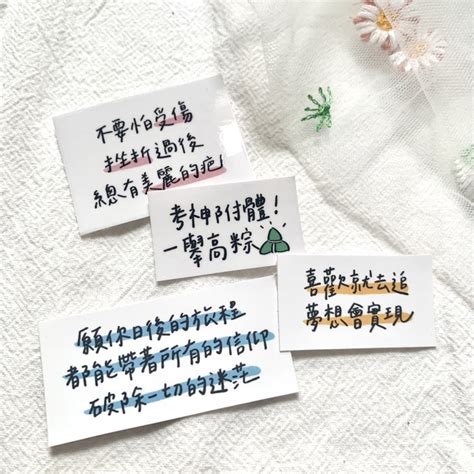 不要怕受傷
挫折過後
總有美麗的疤
考神附體!
一舉高粽
喜歡就去追
夢想會實現
願你日後的旅程
都能帶著所有的信仰
破除一切的迷茫